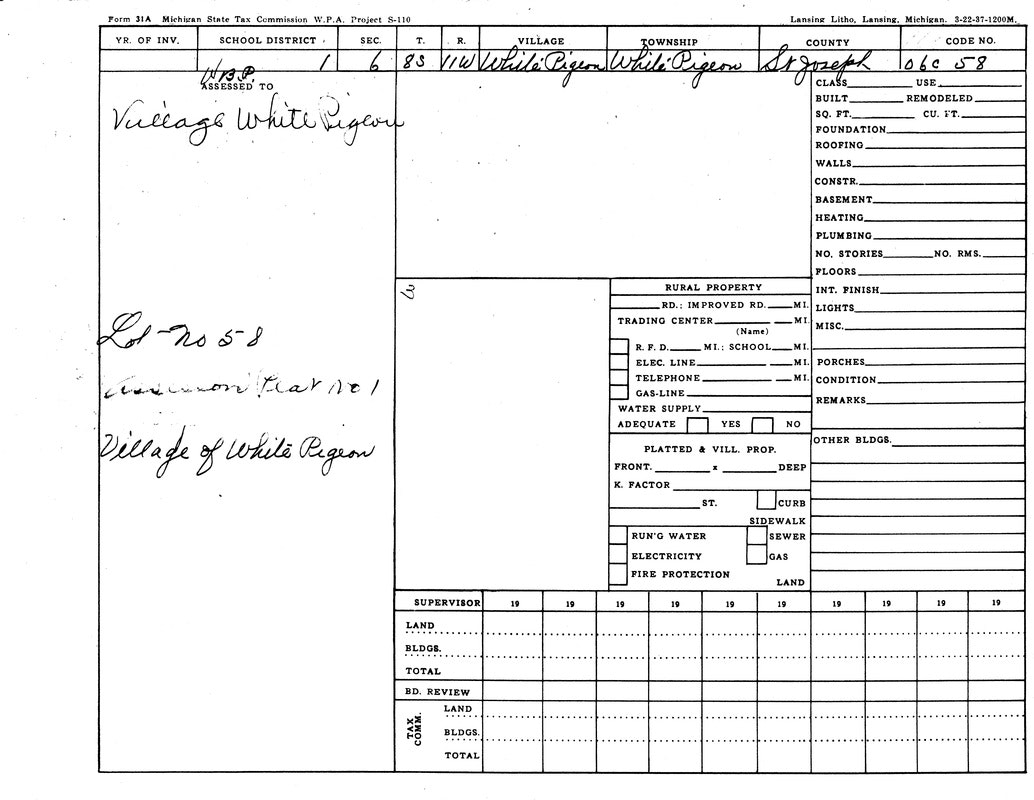 Form 31A Michigan State Tax Commission W.P.A. Project S-110
Lansing Litho, Lansing, Michigan. 3-22-37-1200M.
YR. OF INV. SCHOOL DISTRICT SEC. T. R. VILLAGE TOWNSHIP COUNTY CODE NO.
1 6 8S 11W White Pigeon White Pigeon St Joseph 06C 58
W.B.P.
ASSESSED TO
Village White Pigeon
Lot No 58
Plat No 1
Village of White Pigeon
W
CLASS USE
BUILT REMODELED
SQ. FT. CU. FT.
FOUNDATION
ROOFING
WALLS
CONSTR.
BASEMENT
HEATING
PLUMBING
NO. STORIES NO. RMS.
FLOORS
INT. FINISH
LIGHTS
MISC.
PORCHES
CONDITION
REMARKS
OTHER BLDGS.
RURAL PROPERTY
RD.; IMPROVED RD. MI.
TRADING CENTER MI.
(Name)
R. F. D. MI.; SCHOOL MI.
ELEC. LINE MI.
TELEPHONE MI.
GAS-LINE
WATER SUPPLY
ADEQUATE YES NO
PLATTED & VILL. PROP.
FRONT. x DEEP
K. FACTOR
ST. CURB
SIDEWALK
RUN'G WATER SEWER
ELECTRICITY GAS
FIRE PROTECTION
LAND
SUPERVISOR 19 19 19 19 19 19 19 19 19 19
LAND
BLDGS.
TOTAL
BD. REVIEW
TAX COMM.
LAND
BLDGS.
TOTAL